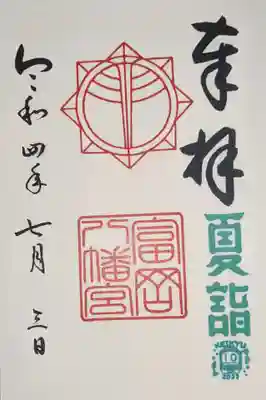 奉拝
夏詣
KEIKYU
10
富岡
八幡宮
令和四年 七月 三日